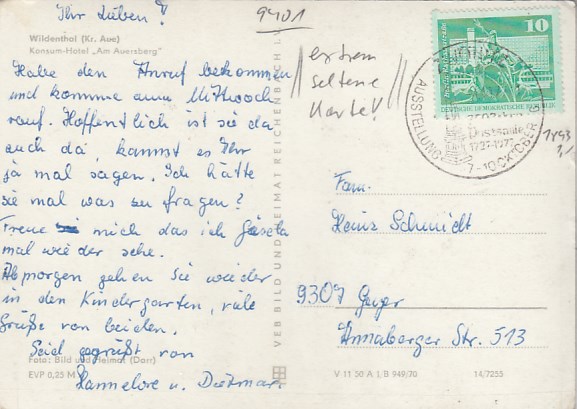 Ihr Lieben!
9401
Wildenthal (Kr. Aue)
Konsum-Hotel „Am Auersberg"
Habe den Anruf bekommen
und komme am Mittwoch
rauf. Hoffentlich ist sie da
auch da, kannst es Ihr
ja mal sagen. Ich hätte
sie mal was zu fragen?
Freue mich das ich Gisela
mal wieder sehe.
Ab morgen gehen Sie wieder
in den Kindergarten, viele
Grüße von beiden.
Seid gegrüßt von
Hannelore u. Dietmar
Foto: Bild und Heimat (Dorr)
EVP 0,25 M
VEB BILD UND HEIMAT REICHENBACH I. V.
extrem
seltene
Karte!
10
DEUTSCHE DEMOKRATISCHE REPUBLIK
AUSSTELLUNG
7.-10. OKTOBER
Fam.
Heinz Schmidt
9307 Geyer
Annaberger Str. 513
V 11 50 A 1/B 949/70
14/7255